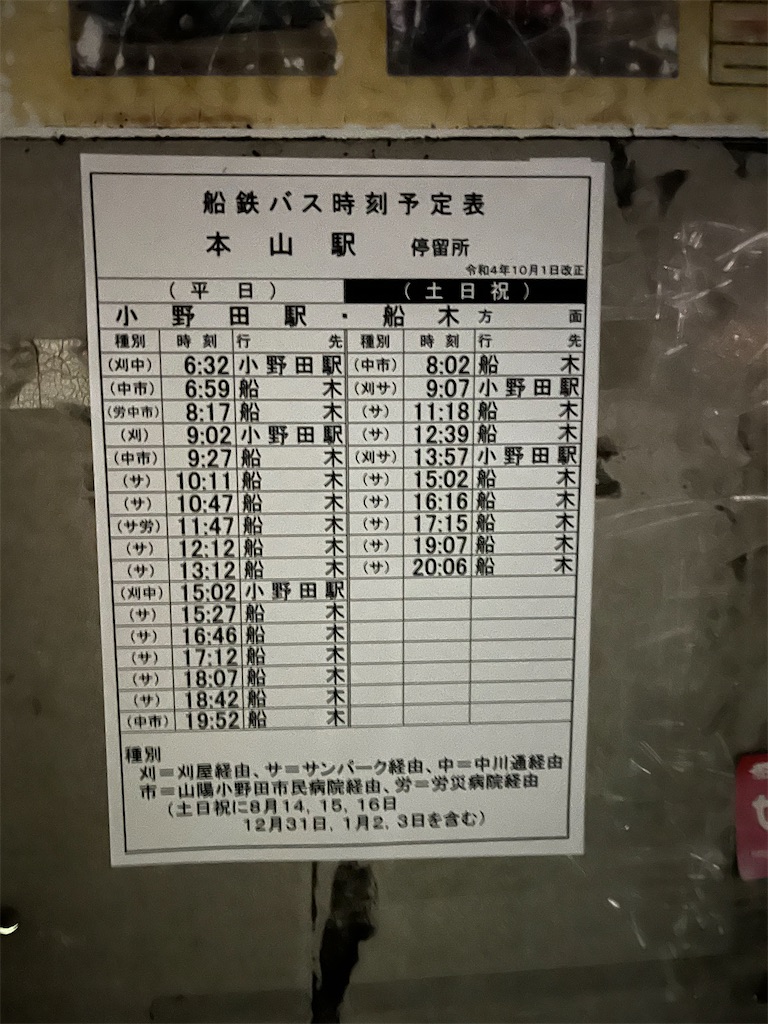 船鉄バス時刻予定表
本山駅 停留所
令和4年10月1日改正
(平日) (土日祝)
小野田駅・船木方面
種別 時刻 行先 種別 時刻 行先
(刈中) 6:32 小野田駅 (中市) 8:02 船木
(中市) 6:59 船木 (刈サ) 9:07 小野田駅
(労中市) 8:17 船木 (サ) 11:18 船木
(刈) 9:02 小野田駅 (サ) 12:39 船木
(中市) 9:27 船木 (刈サ) 13:57 小野田駅
(サ) 10:11 船木 (サ) 15:02 船木
(サ) 10:47 船木 (サ) 16:16 船木
(サ労) 11:47 船木 (サ) 17:15 船木
(サ) 12:12 船木 (サ) 19:07 船木
(サ) 13:12 船木 (サ) 20:06 船木
(刈中) 15:02 小野田駅
(サ) 15:27 船木
(サ) 16:46 船木
(サ) 17:12 船木
(サ) 18:07 船木
(サ) 18:42 船木
(中市) 19:52 船木
種別
刈=刈屋経由、サ=サンパーク経由、中=中川通経由
市=山陽小野田市民病院経由、労=労災病院経由
(土日祝に8月14, 15, 16日
12月31日, 1月2, 3日を含む)